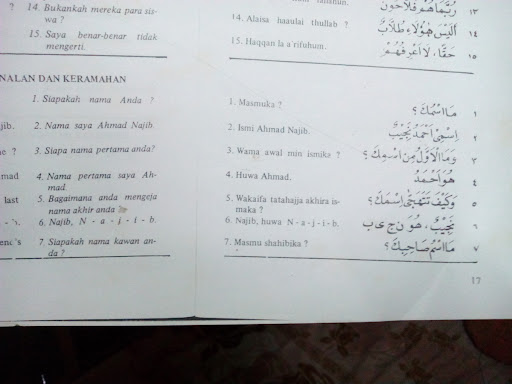 ?
14. Bukankah mereka para sis-
wa ?
15. Saya benar-benar tidak
mengerti.
14. Alaisa haaulai thullab ?
15. Haqqan la a'rifuhum.
رُبَّمَا هُمْ فَلَّاحُونَ ١٣
أَلَيْسَ هٰؤُلَاءِ طُلَّابٌ ١٤
حَقًّا، لَا أَعْرِفُهُمْ ١٥
NALAN DAN KERAMAHAN
1. Siapakah nama Anda ?
jib. 2. Nama saya Ahmad Najib
ne ? 3. Siapa nama pertama anda?
mad 4. Nama pertama saya Ah-
mad.
last 5. Bagaimana anda mengeja
nama akhir anda ?
6. Najib, N - a - j - i - b.
7. Siapakah nama kawan an-
da ?
1. Masmuka ?
2. Ismi Ahmad Najib.
3. Wama awal min ismika ?
4. Huwa Ahmad.
5. Wakaifa tatahajja akhira is-
maka ?
6. Najib, huwa N - a - j - i - b.
7. Masmu shahibika ?
مَا اسْمُكَ ؟ ١
اِسْمِىْ اَحْمَدُ نَجِيْبٌ ٢
وَمَا الْاَوَّلُ مِنِ اسْمِكَ ؟ ٣
هُوَ اَحْمَدُ ٤
وَكَيْفَ تَتَهَجَّى اِسْمَكَ ؟ ٥
نَجِيْبٌ، هُوَ ن ج ى ب ٦
مَا اسْمُ صَاحِبِكَ ؟ ٧
17